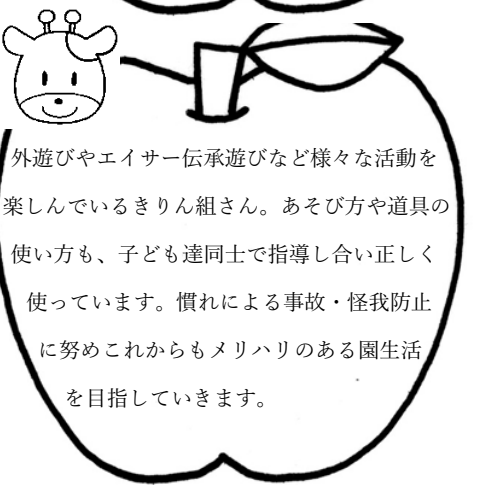 外遊びやエイサー伝承遊びなど様々な活動を
楽しんでいるきりん組さん。あそび方や道具の
使い方も、子ども達同士で指導し合い正しく
使っています。慣れによる事故・怪我防止
に努めこれからもメリハリのある園生活
を目指していきます。